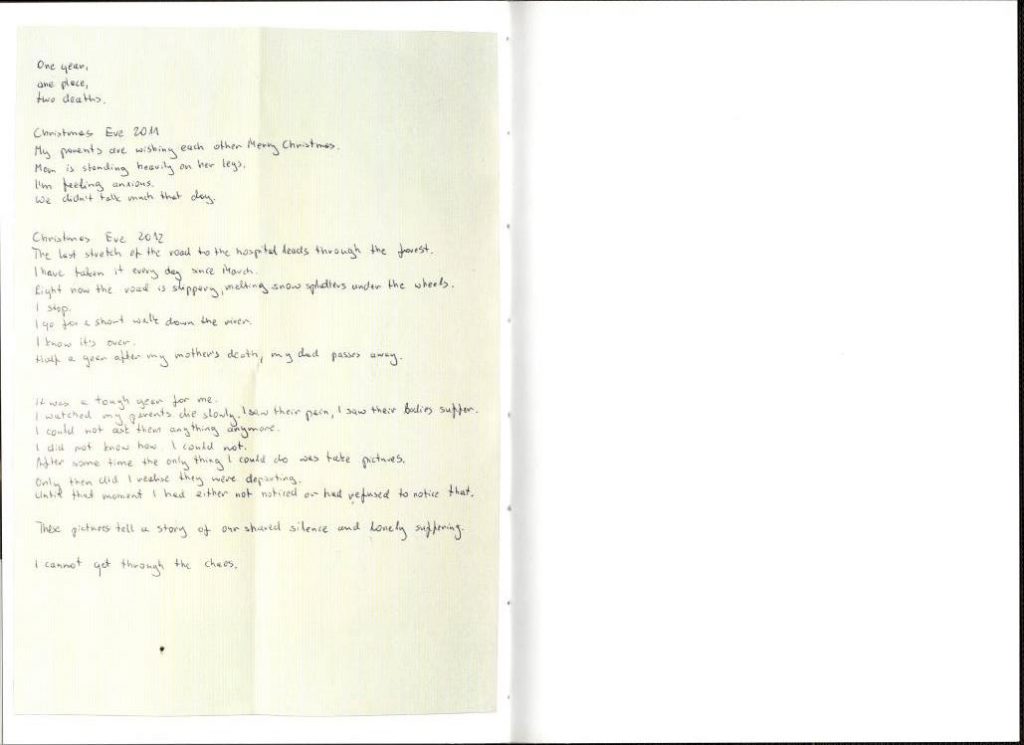 One year,
one place,
two deaths.
Christmas Eve 2011
My parents are wishing each other Merry Christmas.
Mom is standing heavily on her legs.
I'm feeling anxious.
We didn't talk much that day.
Christmas Eve 2012
The last stretch of the road to the hospital leads through the forest.
I have taken it every day since March.
Right now the road is slippery, melting snow splatters under the wheels.
I stop.
I go for a short walk down the river.
I know it's over.
Half a year after my mother's death, my dad passes away.
It was a tough year for me.
I watched my parents die slowly. I saw their pain, I saw their bodies suffer.
I could not ask them anything anymore.
I did not know how. I could not.
After some time the only thing I could do was take pictures.
Only then did I realise they were departing.
Until that moment I had either not noticed or had refused to notice that.
These pictures tell a story of our shared silence and lonely suffering.
I cannot get through the chaos.